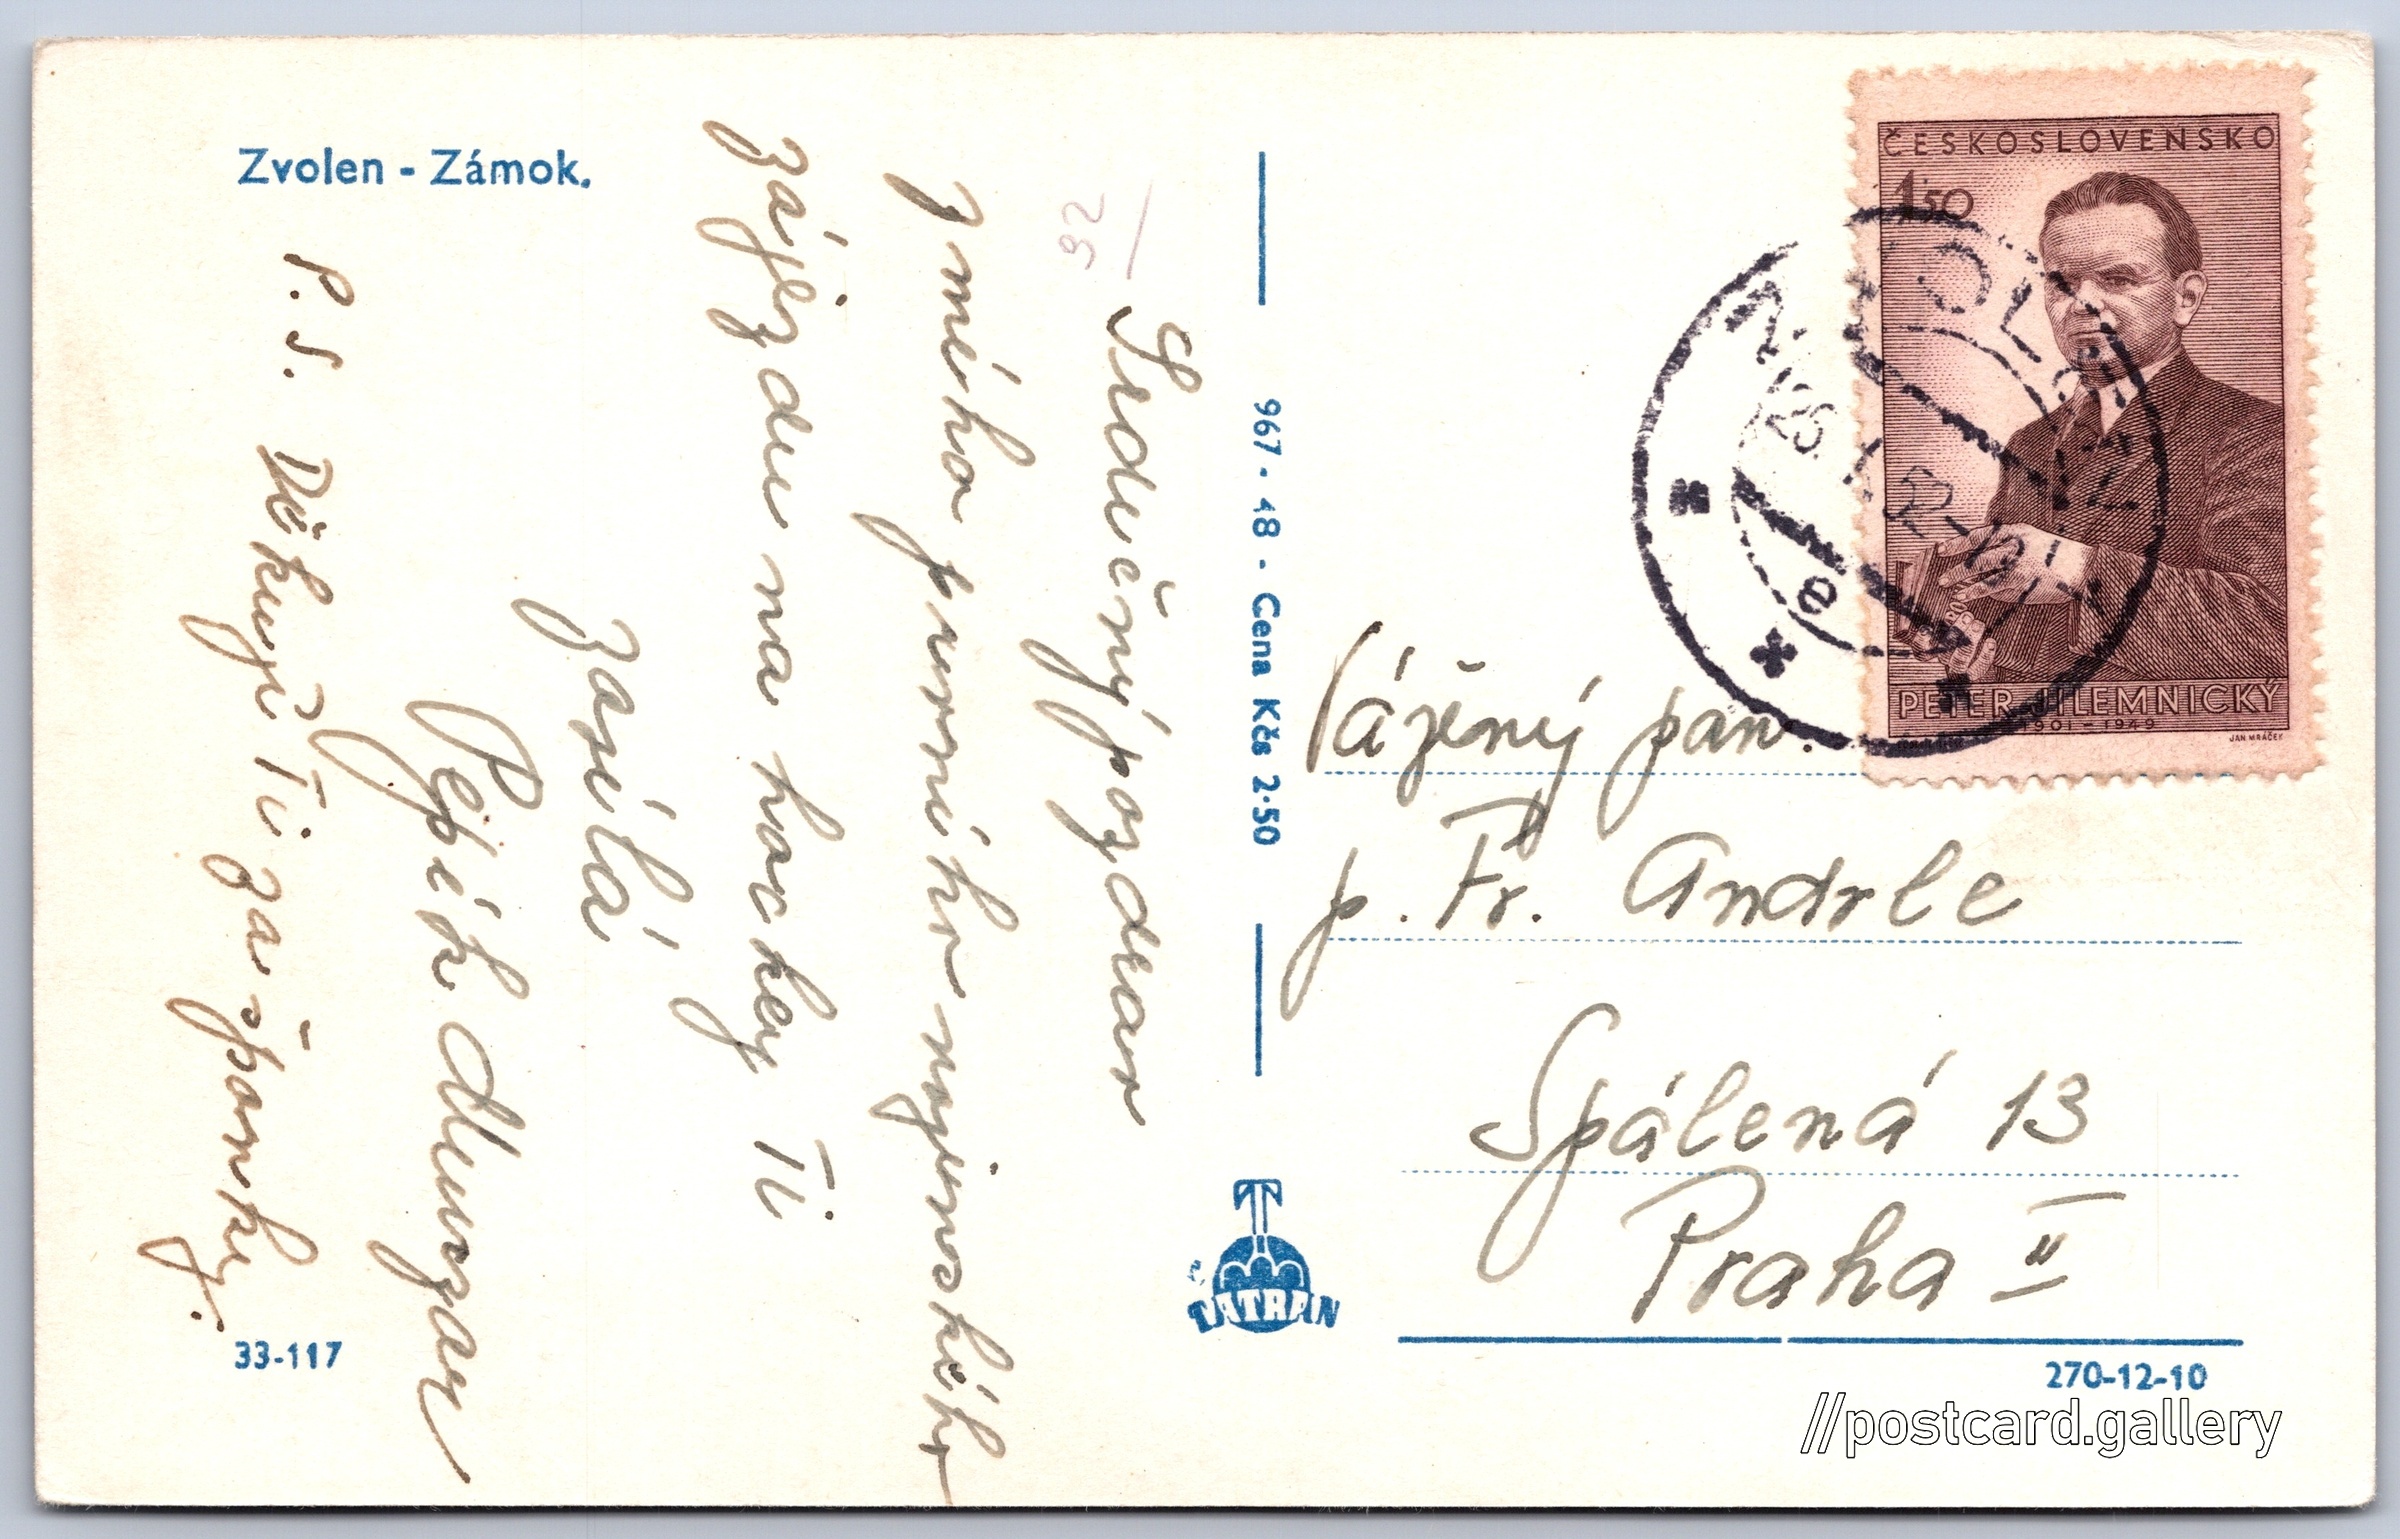 Zvolen - Zámok.
92
Srdečný pozdrav
z mého prvního vojenského
zájezdu na hocky Ti
zasílá
Pepík
P.S. Děkuji Ti za šponky.
33-117
967 - 48 - Cena Kčs 2·50
TATRAN
ČESKOSLOVENSKO
1,50
PETER JILEMNICKÝ
1901 - 1949
JAN MRÁČEK
ZVOLEN
28. X. 52
e
Vážený pan.
p. Fr. Andrle
Spálená 13
Praha II
270-12-10
//postcard.gallery